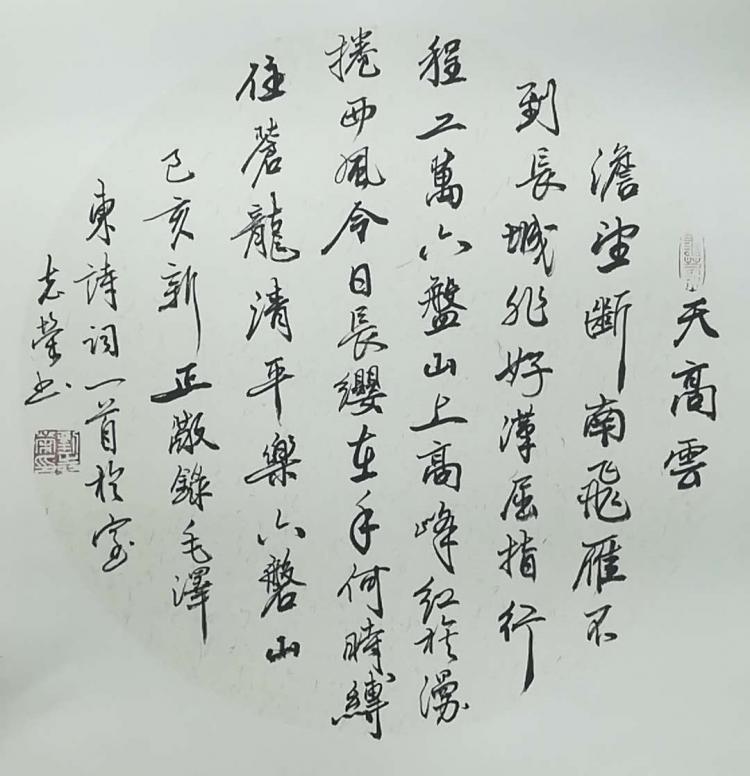 天高雲
澹望斷南飛雁不
到長城非好漢屈指行
程二萬六盤山上高峰紅旗漫
捲西風今日長纓在手何時縛
住蒼龍清平樂六磐山
己亥新正敬錄毛澤
東詩詞一首於
志榮書
劉志榮印